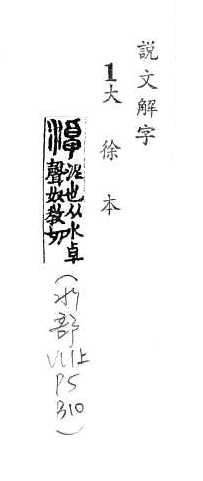 説文解字
1大徐本
淖泥也从水卓
聲奴教切
(水部
VII上
P5
310)